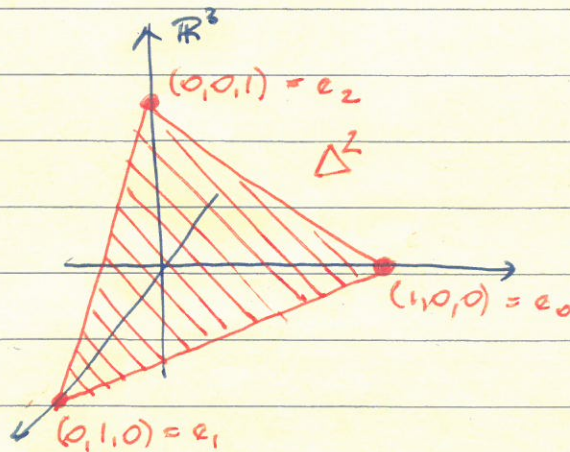 ℝ³
(0,0,1) = e₂
Δ²
(1,0,0) = e₀
(0,1,0) = e₁